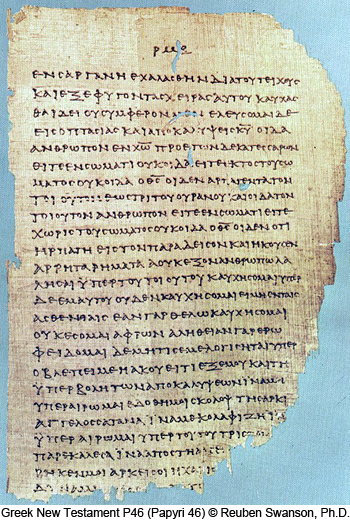 ΕΝ ΣΑΡΓΑΝΗ ΕΧΑΛΑΣΘΗΝ ΔΙΑ ΤΟΥ ΤΕΙΧΟΥΣ
ΚΑΙ ΕΞΕΦΥΓΟΝ ΤΑΣ ΧΕΙΡΑΣ ΑΥΤΟΥ ΚΑΥΧΑΣ
ΘΑΙ ΔΕΙ ΟΥ ΣΥΜΦΕΡΟΝ ΜΕΝ ΕΛΕΥΣΟΜΑΙ ΔΕ
ΕΙΣ ΟΠΤΑΣΙΑΣ ΚΑΙ ΑΠΟΚΑΛΥΨΕΙΣ ΚΥ ΟΙΔΑ
ΑΝΘΡΩΠΟΝ ΕΝ ΧΩ ΠΡΟ ΕΤΩΝ ΔΕΚΑΤΕΣΣΑΡΩΝ
ΕΙΤΕ ΕΝ ΣΩΜΑΤΙ ΟΥΚ ΟΙΔΑ ΕΙΤΕ ΕΚΤΟΣ ΤΟΥ ΣΩ
ΜΑΤΟΣ ΟΥΚ ΟΙΔΑ Ο ΘΣ ΟΙΔΕΝ ΑΡΠΑΓΕΝΤΑ ΤΟΝ
ΤΟΙΟΥΤΟΝ ΕΩΣ ΤΡΙΤΟΥ ΟΥΡΑΝΟΥ ΚΑΙ ΟΙΔΑ ΤΟΝ
ΤΟΙΟΥΤΟΝ ΑΝΘΡΩΠΟΝ ΕΙΤΕ ΕΝ ΣΩΜΑΤΙ ΕΙΤΕ
ΧΩΡΙΣ ΤΟΥ ΣΩΜΑΤΟΣ ΟΥΚ ΟΙΔΑ Ο ΘΣ ΟΙΔΕΝ ΟΤΙ
ΗΡΠΑΓΗ ΕΙΣ ΤΟΝ ΠΑΡΑΔΕΙΣΟΝ ΚΑΙ ΗΚΟΥΣΕΝ
ΑΡΡΗΤΑ ΡΗΜΑΤΑ Α ΟΥΚ ΕΞΟΝ ΑΝΘΡΩΠΩ ΛΑ
ΛΗΣΑΙ ΥΠΕΡ ΤΟΥ ΤΟΙΟΥΤΟΥ ΚΑΥΧΗΣΟΜΑΙ ΥΠΕΡ
ΔΕ ΕΜΑΥΤΟΥ ΟΥΔΕΝ ΚΑΥΧΗΣΟΜΑΙ ΕΙ ΜΗ ΕΝ ΤΑΙΣ
ΑΣΘΕΝΕΙΑΙΣ ΕΑΝ ΓΑΡ ΘΕΛΩ ΚΑΥΧΗΣΟΜΑΙ
ΟΥΚ ΕΣΟΜΑΙ ΑΦΡΩΝ ΑΛΗΘΕΙΑΝ ΓΑΡ ΕΡΩ
ΦΕΙΔΟΜΑΙ ΔΕ ΜΗ ΤΙΣ ΕΜΕ ΥΠΕΡ
Ο ΒΛΕΠΕΙ ΜΕ Η ΑΚΟΥΕΙ ΤΙ ΕΞ ΕΜΟΥ ΚΑΙ ΤΗ
ΥΠΕΡΒΟΛΗ ΤΩΝ ΑΠΟΚΑΛΥΨΕΩΝ ΙΝΑ ΜΗ
ΥΠΕΡΑΙΡΩΜΑΙ ΕΔΟΘΗ ΜΟΙ ΣΚΟΛΟΨ ΤΗ ΣΑΡΚΙ
ΑΓΓΕΛΟΣ ΣΑΤΑΝΑ ΙΝΑ ΜΕ ΚΟΛΑΦΙΖΗ
ΥΠΕΡΑΙΡΩΜΑΙ ΥΠΕΡ ΤΟΥΤΟΥ ΤΡΙΣ
ΠΑΡΕΚΑΛΕΣΑ ΙΝΑ ΑΠΟΣΤΗ
ΡΗΚΕΝ ΜΟΙ ΑΡΚΕΙ ΣΟΙ Η ΧΑΡΙΣ
Greek New Testament P46 (Papyri 46) © Reuben Swanson, Ph.D.